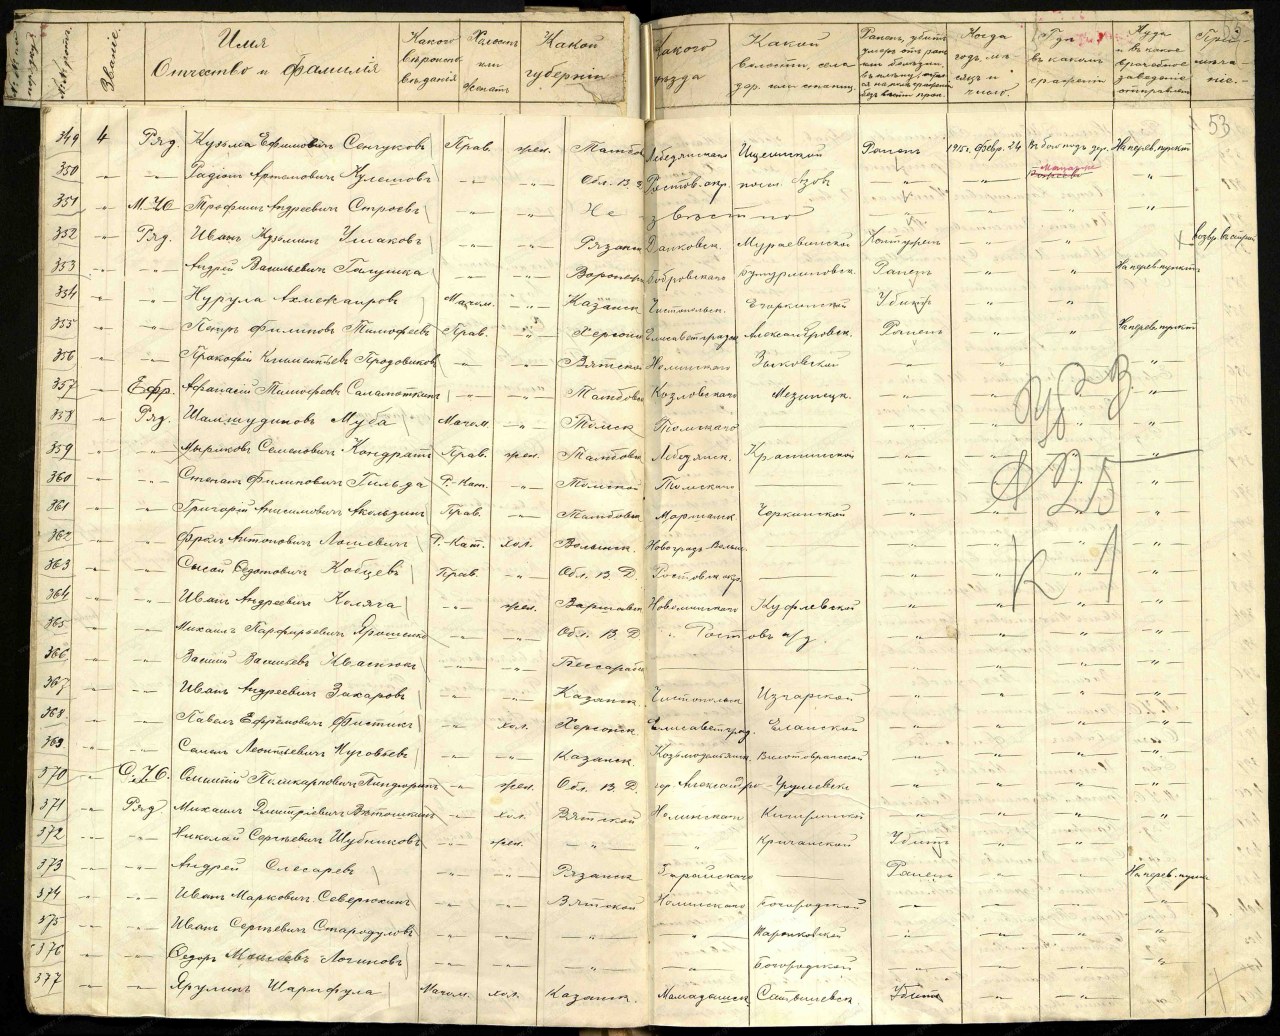 №№ по порядку. № роты. Званіе. Имя Отчество и Фамилія Какого вѣроисповѣданія Холостъ или женатъ Какой губерніи Какого уѣзда Какой волости, села дер. или станиц. Раненъ, убитъ умеръ отъ ран или болѣзни, въ плѣну, остался на полѣ сраженія безъ вѣсти проп. Когда годъ, мѣсяцъ и число. Гдѣ въ какомъ сраженіи Куда и въ какое врачебное заведеніе отправленъ Примѣчаніе.
53
349 4 Ряд. Кузьма Ефимовичъ Сенчуковъ Прав. жен. Тамбов Лебедянскаго Ищеинской Раненъ 1915 г. Февр. 24 Въ бою подъ дер. На перев. пунктъ
350 -"- -"- Радіон Артемовичъ Кулешовъ -"- -"- Обл. В. Д. Ростов. окр. посел. Азов -"- -"- -"-
351 -"- М. У.О. Трофимъ Андреевичъ Строевъ -"- -"- Не извѣстно -"- -"- -"- -"-
352 -"- Ряд. Иванъ Кузьминъ Ушаковъ -"- -"- Рязанск Данковск. Мураевинской Контужен -"- -"- возвр. въ строй
353 -"- -"- Андрей Васильевичъ Галушка -"- -"- Воронеж Бобровскаго Раненъ -"- -"- На перев. пунктъ
354 -"- -"- Нурула Ахметжаровъ Магом. -"- Казанск. Чистопольск. Убитъ -"- -"-
355 -"- -"- Петръ Филиповъ Тимофеевъ Прав. -"- Херсонск Елисаветградск Александровск. Раненъ -"- -"- На перев. пунктъ
356 -"- -"- Прокофій Климентьевъ Продовиковъ -"- -"- Вятской Нолинскаго Зыковской -"- -"- -"- -"-
357 -"- Ефр. Афанасій Тимофеевъ Саламаткинъ -"- -"- Тамбовск Козловскаго Мезинецк. -"- -"- -"- -"-
358 -"- Ряд. Шамшудиновъ Муба Магом. -"- Томск Томскаго — -"- -"- -"- -"-
359 -"- -"- Семеновичъ Кондратъ Прав. жен. Тамбовск Лебедянск. Краснинской -"- -"- -"- -"-
360 -"- -"- Степанъ Филиповичъ Гильда Р.-Кат. -"- Томской Томскаго — -"- -"- -"- -"-
361 -"- -"- Григорій Анисимовичъ Акользинъ Прав. -"- Тамбовск. Моршанск. Черкинской -"- -"- -"- -"-
362 -"- -"- Фролъ Антоновичъ Лошевичъ Р.-Кат. хол. Волынск. Новоградъ Волын. — -"- -"- -"- -"-
363 -"- -"- Сысой Федотовичъ Кобцевъ Прав. -"- Обл. В. Д. Ростовск. окр. — -"- -"- -"- -"-
364 -"- -"- Иванъ Андреевичъ Коляга -"- жен. Варшавск Новоминскаго Куфлевской -"- -"- -"- -"-
365 -"- -"- Михаилъ Парфирьевичъ Ярошенко -"- -"- Обл. В. Д. -"- Ростовъ н/Д. -"- -"- -"- -"-
366 -"- -"- Василій Васильевъ Квастюкъ -"- -"- Бессараби — — -"- -"- -"- -"-
367 -"- -"- Иванъ Андреевичъ Захаровъ -"- -"- Казанск. Чистопольск. Изгарской -"- -"- -"- -"-
368 -"- -"- Павелъ Ефремовичъ Фистикъ -"- хол. Херсонск. Елисаветград. Еланской -"- -"- -"- -"-
369 -"- -"- Семенъ Леонтьевичъ Нуговьевъ -"- -"- Казанск. Козьмодемьянск. -"- -"- -"- -"-
370 -"- С. У.О. Поликарповичъ -"- жен. Обл. В. Д. гор. Александро-Грушевск -"- -"- -"- -"-
371 -"- Ряд. Михаилъ Дмитріевичъ Ветошкинъ -"- хол. Вятской Нолинскаго -"- -"- -"- -"-
372 -"- -"- Николай Сергѣевичъ Шубниковъ -"- жен. -"- -"- Кричанской Убитъ -"- -"-
373 -"- -"- Андрей Слесаревъ -"- -"- Рязанск. Зарайскаго — Раненъ -"- -"- На перев. пункт
374 -"- -"- Иванъ Марковичъ Северюхинъ -"- -"- Вятской Нолинскаго Богородской -"- -"- -"- -"-
375 -"- -"- Иванъ Сергѣевичъ Стародумовъ -"- -"- -"- -"- -"- -"- -"- -"-
376 -"- -"- Федоръ Моисеевъ Логиновъ -"- -"- -"- -"- Богородской -"- -"- -"- -"-
377 -"- -"- Ярулинъ Шарифула Магом. хол. Казанск. Мамадышск. Убитъ -"- -"- -"-